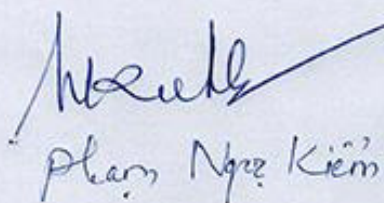 Phạm Ngọc Kiểm